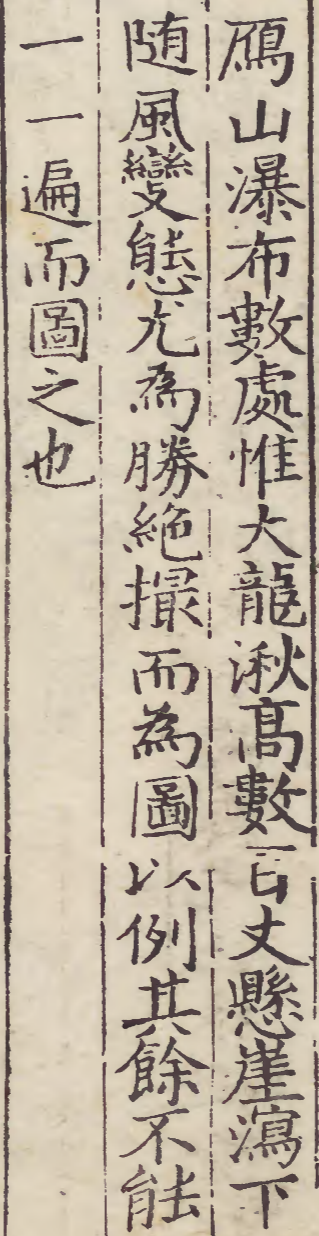 鴈山瀑布數處惟大龍湫高數百丈懸崖瀉下
随風變態尤為勝絶撮而為圖以例其餘不能
一一遍而圖之也